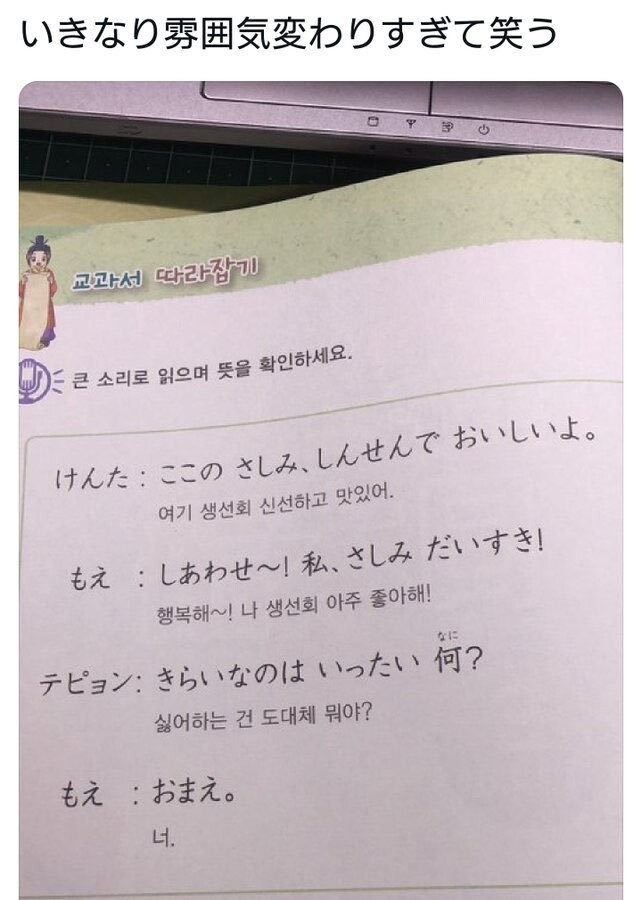 いきなり雰囲気変わりすぎて笑う
교과서 따라잡기
큰 소리로 읽으며 뜻을 확인하세요.
けんた : ここの さしみ、しんせんで おいしいよ。
여기 생선회 신선하고 맛있어.
もえ : しあわせ〜! 私、さしみ だいすき!
행복해~! 나 생선회 아주 좋아해!
なに
テピョン: きらいなのは いったい 何?
싫어하는 건 도대체 뭐야?
もえ : おまえ。
너.